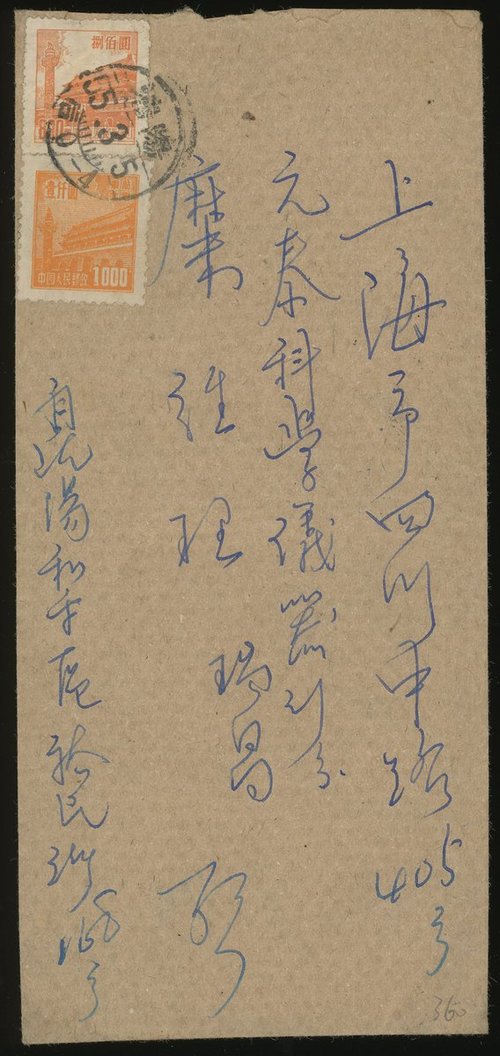 上海市四川中路405号
元泰科学仪器行分
康 经理 瑞昌
自沈阳和平区 民 168号
捌佰圆
800
壹仟圆
中国人民邮政 1000
55.3.5
360